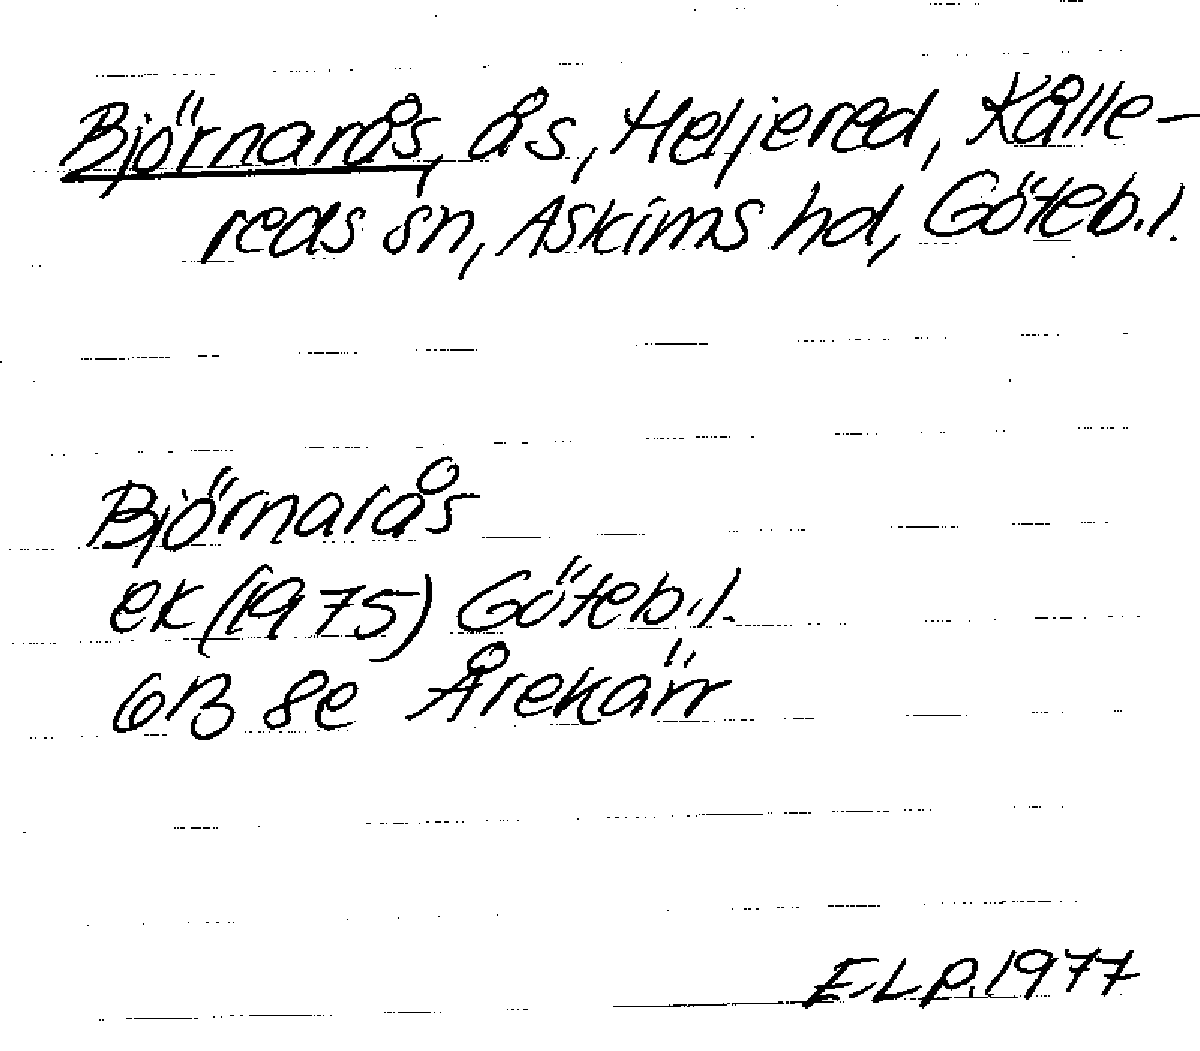 Björnarås, ås, Heljered, Kålle-
reds sn, Askims hd, Göteb.l.
Björnarås
ek (1975) Göteb.l.
6B 8e Årekärr
E.L.P. 1977